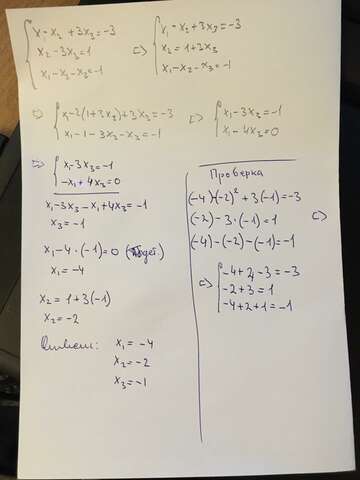 { x - x₂ + 3x₃ = -3
x₂ - 3x₃ = 1
x₁ - x₂ - x₃ = -1
=> { x₁ - x₂ + 3x₃ = -3
x₂ = 1 + 3x₃
x₁ - x₂ - x₃ = -1
=> { x - 2(1 + 3x₃) + 3x₃ = -3
x₁ - 1 - 3x₃ - x₃ = -1
=> { x₁ - 3x₃ = -1
x₁ - 4x₃ = 0
=> { x₁ - 3x₃ = -1
-x₁ + 4x₃ = 0
x₁ - 3x₃ - x₁ + 4x₃ = -1
x₃ = -1
x₁ - 4 · (-1) = 0
x₁ = -4
x₂ = 1 + 3(-1)
x₂ = -2
Ответ: x₁ = -4
x₂ = -2
x₃ = -1
Проверка
(-4) - (-2)² + 3(-1) = -3
(-2) - 3 · (-1) = 1 =>
(-4) - (-2) - (-1) = -1
=> { -4 + 4 - 3 = -3
-2 + 3 = 1
-4 + 2 + 1 = -1